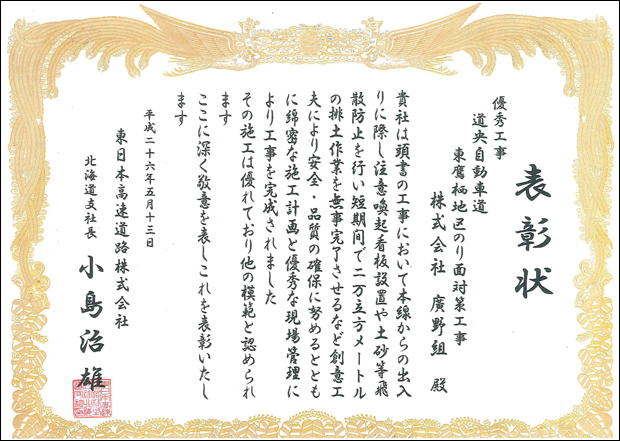 表彰状
優秀工事
道央自動車道
東鷹栖地区のり面対策工事
株式会社 廣野組 殿
貴社は頭書の工事において本線からの出入
りに際し注意喚起看板設置や土砂等飛
散防止を行い短期間で二万立方メートル
の排土作業を無事完了させるなど創意工
夫により安全・品質の確保に努めるととも
に綿密な施工計画と優秀な現場管理に
より工事を完成されました
その施工は優れており他の模範と認められ
ます
ここに深く敬意を表しこれを表彰いたし
ます
平成二十六年五月十三日
東日本高速道路株式会社
北海道支社長
小島治雄